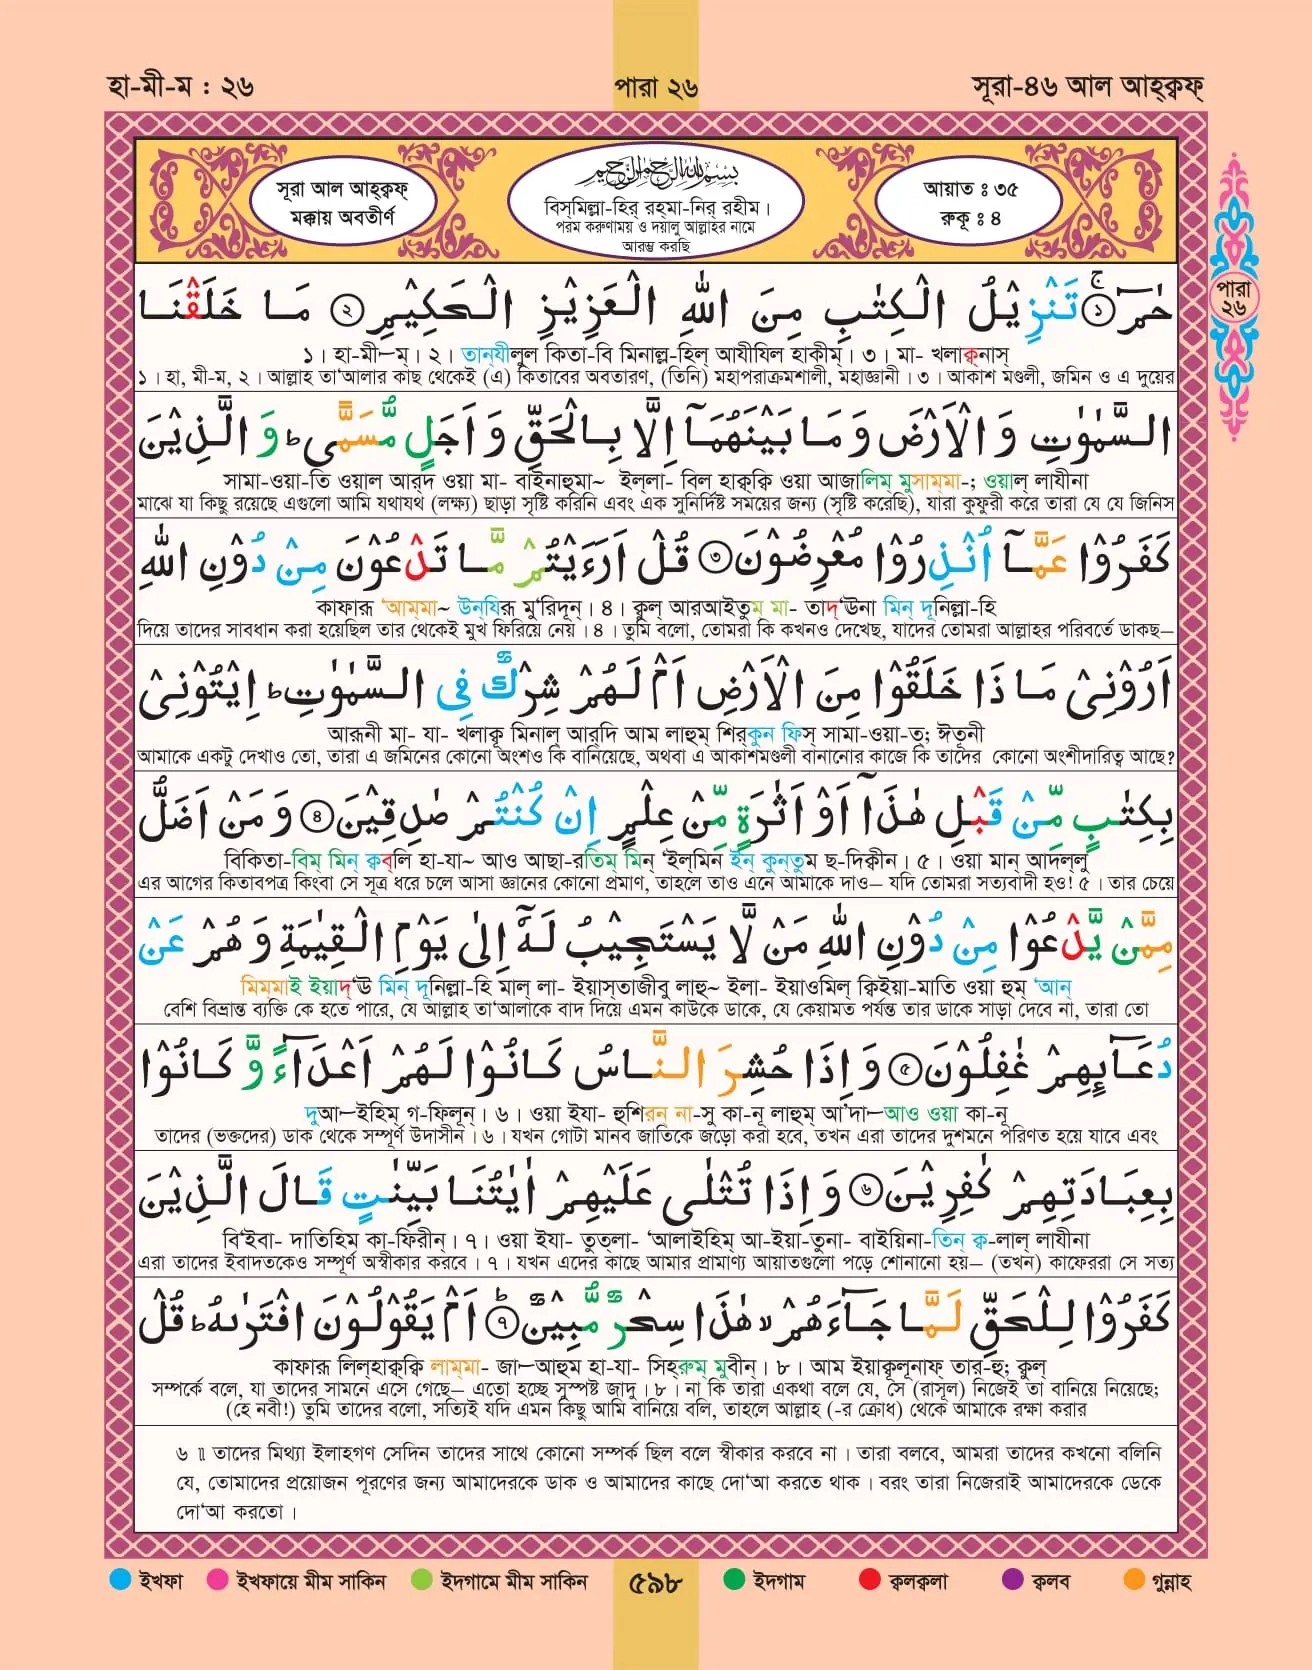 হা-মী-ম : ২৬
পারা ২৬
সূরা-৪৬ আল আহ্ক্বফ্
সূরা আল আহ্ক্বফ্
মক্কায় অবতীর্ণ
بِسْمِ اللهِ الرَّحْمٰنِ الرَّحِيْمِ
বিস্‌মিল্লা-হির্ রহ্‌মা-নির্ রহীম।
পরম করুণাময় ও দয়ালু আল্লাহর নামে
আরম্ভ করছি
আয়াত ঃ ৩৫
রুকূ ঃ ৪
পারা
২৬
حٰمٓ ۚ﴿١﴾ تَنْزِيْلُ الْكِتٰبِ مِنَ اللّٰهِ الْعَزِيْزِ الْحَكِيْمِ ﴿٢﴾ مَا خَلَقْنَا
১। হা-মী—ম্। ২। তান্‌যীলুল কিতা-বি মিনাল্ল-হিল্ আযীযিল হাকীম্। ৩। মা- খলাক্ব্‌নাস্
১। হা, মী-ম, ২। আল্লাহ তা‘আলার কাছ থেকেই (এ) কিতাবের অবতারণ, (তিনি) মহাপরাক্রমশালী, মহাজ্ঞানী। ৩। আকাশ মণ্ডলী, জমিন ও এ দুয়ের
السَّمٰوٰتِ وَ الْاَرْضَ وَ مَا بَيْنَهُمَآ اِلَّا بِالْحَقِّ وَ اَجَلٍ مُّسَمًّى ؕ وَ الَّذِيْنَ
সামা-ওয়া-তি ওয়াল আর্‌দ ওয়া মা- বাইনাহুমা~ ইল্‌লা- বিল হাক্ব্‌ক্বি ওয়া আজালিম্ মুসাম্‌মা-; ওয়াল্ লাযীনা
মাঝে যা কিছু রয়েছে এগুলো আমি যথাযথ (লক্ষ্য) ছাড়া সৃষ্টি করিনি এবং এক সুনির্দিষ্ট সময়ের জন্য (সৃষ্টি করেছি), যারা কুফুরী করে তারা যে যে জিনিস
كَفَرُوْا عَمَّآ اُنْذِرُوْا مُعْرِضُوْنَ ﴿٣﴾ قُلْ اَرَءَيْتُمْ مَّا تَدْعُوْنَ مِنْ دُوْنِ اللّٰهِ
কাফারূ ‘আম্‌মা~ উন্‌যিরূ মু‘রিদূন্। ৪। ক্বুল্ আরআইতুম মা- তাদ্‘ঊনা মিন্ দূনিল্লা-হি
দিয়ে তাদের সাবধান করা হয়েছিল তার থেকেই মুখ ফিরিয়ে নেয়। ৪। তুমি বলো, তোমরা কি কখনও দেখেছ, যাদের তোমরা আল্লাহর পরিবর্তে ডাকছ—
اَرُوْنِيْ مَا ذَا خَلَقُوْا مِنَ الْاَرْضِ اَمْ لَهُمْ شِرْكٌ فِي السَّمٰوٰتِ ؕ اِيْتُوْنِيْ
আরূনী মা- যা- খলাক্বূ মিনাল্ আর্‌দি আম লাহুম্ শির্‌কুন ফিস্ সামা-ওয়া-ত্; ঈতূনী
আমাকে একটু দেখাও তো, তারা এ জমিনের কোনো অংশও কি বানিয়েছে, অথবা এ আকাশমণ্ডলী বানানোর কাজে কি তাদের কোনো অংশীদারিত্ব আছে?
بِكِتٰبٍ مِّنْ قَبْلِ هٰذَآ اَوْ اَثٰرَةٍ مِّنْ عِلْمٍ اِنْ كُنْتُمْ صٰدِقِيْنَ ﴿٤﴾ وَ مَنْ اَضَلُّ
বিকিতা-বিম্ মিন্ ক্বব্‌লি হা-যা~ আও আছা-রতিম্ মিন্ ‘ইল্‌মিন ইন্ কুন্‌তুম ছ-দিক্বীন। ৫। ওয়া মান্ আদল্‌লু
এর আগের কিতাবপত্র কিংবা সে সূত্র ধরে চলে আসা জ্ঞানের কোনো প্রমাণ, তাহলে তাও এনে আমাকে দাও— যদি তোমরা সত্যবাদী হও! ৫। তার চেয়ে
مِمَّنْ يَّدْعُوْا مِنْ دُوْنِ اللّٰهِ مَنْ لَّا يَسْتَجِيْبُ لَهٗٓ اِلٰى يَوْمِ الْقِيٰمَةِ وَ هُمْ عَنْ
মিমমাই ইয়াদ্‘ঊ মিন্ দূনিল্লা-হি মাল্ লা- ইয়াস্‌তাজীবু লাহূ~ ইলা- ইয়াওমিল্ ক্বিইয়া-মাতি ওয়া হুম্ ‘আন্
বেশি বিভ্রান্ত ব্যক্তি কে হতে পারে, যে আল্লাহ তা‘আলাকে বাদ দিয়ে এমন কাউকে ডাকে, যে কেয়ামত পর্যন্ত তার ডাকে সাড়া দেবে না, তারা তো
دُعَآئِهِمْ غٰفِلُوْنَ ﴿٥﴾ وَ اِذَا حُشِرَ النَّاسُ كَانُوْا لَهُمْ اَعْدَآءً وَّ كَانُوْا
দুআ—ইহিম্ গ-ফিলূন্। ৬। ওয়া ইযা- হুশিরন্ না-সু কা-নূ লাহুম্ আ‘দা—আও ওয়া কা-নূ
তাদের (ভক্তদের) ডাক থেকে সম্পূর্ণ উদাসীন। ৬। যখন গোটা মানব জাতিকে জড়ো করা হবে, তখন এরা তাদের দুশমনে পরিণত হয়ে যাবে এবং
بِعِبَادَتِهِمْ كٰفِرِيْنَ ﴿٦﴾ وَ اِذَا تُتْلٰى عَلَيْهِمْ اٰيٰتُنَا بَيِّنٰتٍ قَالَ الَّذِيْنَ
বি‘ইবা- দাতিহিম কা-ফিরীন্। ৭। ওয়া ইযা- তুত্‌লা- ‘আলাইহিম্ আ-ইয়া-তুনা- বাইয়িনা-তিন্ ক্ব-লাল্ লাযীনা
এরা তাদের ইবাদতকেও সম্পূর্ণ অস্বীকার করবে। ৭। যখন এদের কাছে আমার প্রামাণ্য আয়াতগুলো পড়ে শোনানো হয়— (তখন) কাফেররা সে সত্য
كَفَرُوْا لِلْحَقِّ لَمَّا جَآءَهُمْ ۙ هٰذَا سِحْرٌ مُّبِيْنٌ ؕ﴿٧﴾ اَمْ يَقُوْلُوْنَ افْتَرٰىهُ ؕ قُلْ
কাফারূ লিল্‌হাক্ব্‌ক্বি লাম্‌মা- জা—আহুম হা-যা- সিহ্‌রুম্ মুবীন্। ৮। আম ইয়াক্বূলূনাফ্ তার-হু; ক্বুল্
সম্পর্কে বলে, যা তাদের সামনে এসে গেছে— এতো হচ্ছে সুস্পষ্ট জাদু। ৮। না কি তারা একথা বলে যে, সে (রাসূল) নিজেই তা বানিয়ে নিয়েছে;
(হে নবী!) তুমি তাদের বলো, সত্যিই যদি এমন কিছু আমি বানিয়ে বলি, তাহলে আল্লাহ (-র ক্রোধ) থেকে আমাকে রক্ষা করার
৬ ॥ তাদের মিথ্যা ইলাহগণ সেদিন তাদের সাথে কোনো সম্পর্ক ছিল বলে স্বীকার করবে না। তারা বলবে, আমরা তাদের কখনো বলিনি
যে, তোমাদের প্রয়োজন পূরণের জন্য আমাদেরকে ডাক ও আমাদের কাছে দো‘আ করতে থাক। বরং তারা নিজেরাই আমাদেরকে ডেকে
দো‘আ করতো।
ইখফা
ইখফায়ে মীম সাকিন
ইদগামে মীম সাকিন
৫৯৮
ইদগাম
ক্বলক্বলা
ক্বলব
গুন্নাহ